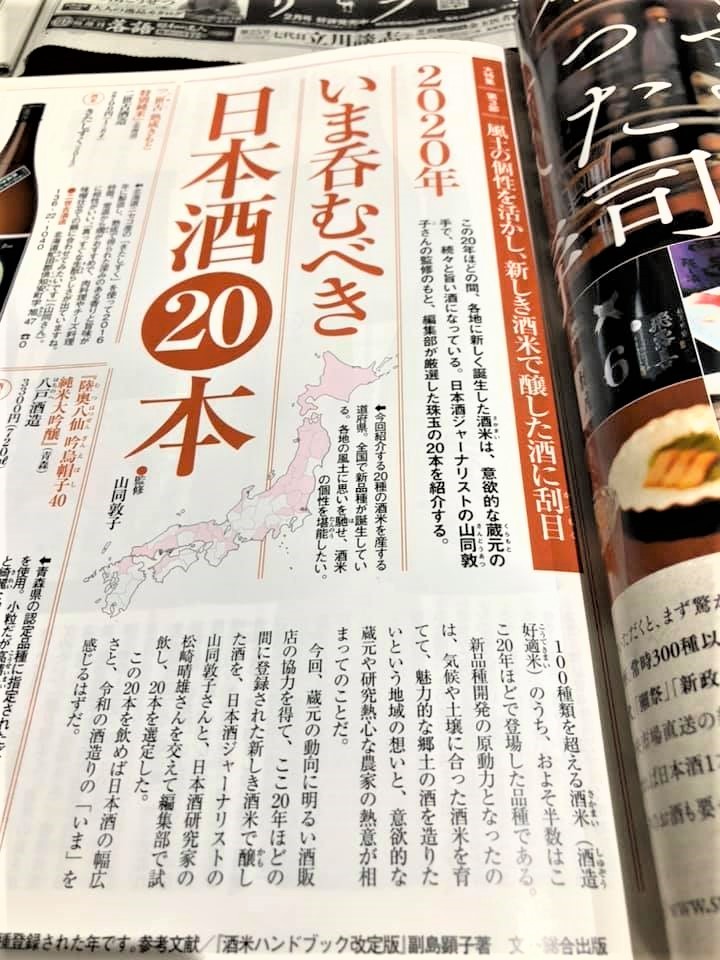 大特集 第3部
風土の個性を活かし、新しき酒米で醸した酒に刮目
2020年
いま呑むべき
日本酒20本
●監修
山同敦子
この20年ほどの間、各地に新しく誕生した酒米は、意欲的な蔵元の
手で、続々と旨い酒になっている。日本酒ジャーナリストの山同敦
子さんの監修のもと、編集部が厳選した珠玉の20本を紹介する。
さかまい
くらもと
さんどうあつ
今回紹介する20種の酒米を産する
道府県。全国で新品種が誕生してい
る。各地の風土に思いを馳せ、酒米
の個性を堪能したい。
100種類を超える酒米（酒造
好適米）のうち、およそ半数はこ
こ20年ほどで登場した品種である。
新品種開発の原動力となったの
は、気候や土壌に合った酒米を育
てて、魅力的な郷土の酒を造りた
いという地域の想いと、意欲的な
蔵元や研究熱心な農家の熱意が相
まってのことだ。
今回、蔵元の動向に明るい酒販
店の協力を得て、ここ20年ほどの
間に登録された新しき酒米で醸し
た酒を、日本酒ジャーナリストの
山同敦子さんと、日本酒研究家の
松崎晴雄さんを交えて編集部で試
飲し、20本を選定した。
この20本を飲めば日本酒の幅広
さと、令和の酒造りの「いま」を
感じるはずだ。
二世古酒造
『陸奥八仙 吟烏帽子40
純米大吟醸』（青森）
八戸酒造
3300円（720㎖）
青森県の認定品種に指定された
を使用。小粒だが高精
種登録された年です。参考文献／『酒米ハンドブック改定版』副島顕子著
総合出版
った
司
常時300種以
「獺祭」「新政
市場直送の
ば日本酒1
お酒も要
落語
立川談志
2月号 好評発売中